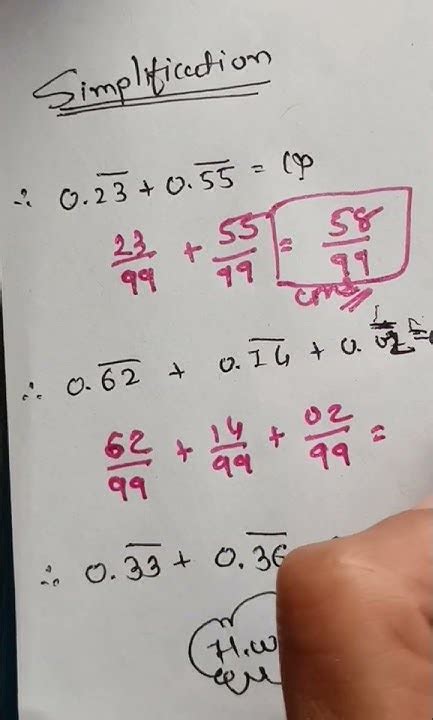 Simplification
∴ 0.2̅3̅ + 0.5̅5̅ =
23/99 + 55/99 = 58/99
∴ 0.6̅2̅ + 0.1̅4̅ + 0.
62/99 + 14/99 + 02/99 =
∴ 0.3̅3̅ + 0.3̅6̅
H.W